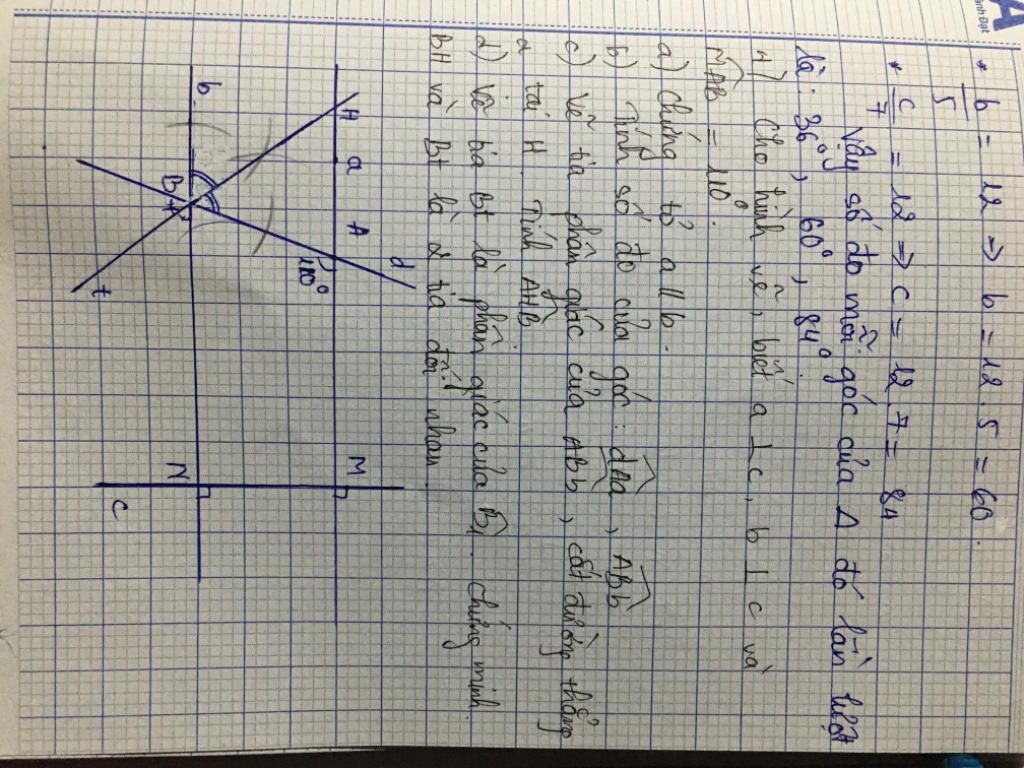 A
ành Đạt
* b/5 = 12 => b = 12 . 5 = 60.
* c/7 = 12 => c = 12 . 7 = 84
Vậy số đo mỗi góc của Δ đó lần lượt
là: 36°, 60°, 84°.
4) Cho hình vẽ, biết a ⊥ c, b ⊥ c và
MÂB = 110°.
a) Chứng tỏ a // b.
b) Tính số đo của góc: dÂa, AB̂b
c) Vẽ tia phân giác của AB̂b, cắt đường thẳng
a tại H. Tính AĤB.
d) Vẽ tia Bt là phân giác của B̂1. Chứng minh
BH và Bt là 2 tia đối nhau.
H a A d M
110°
b B 1 N
t c